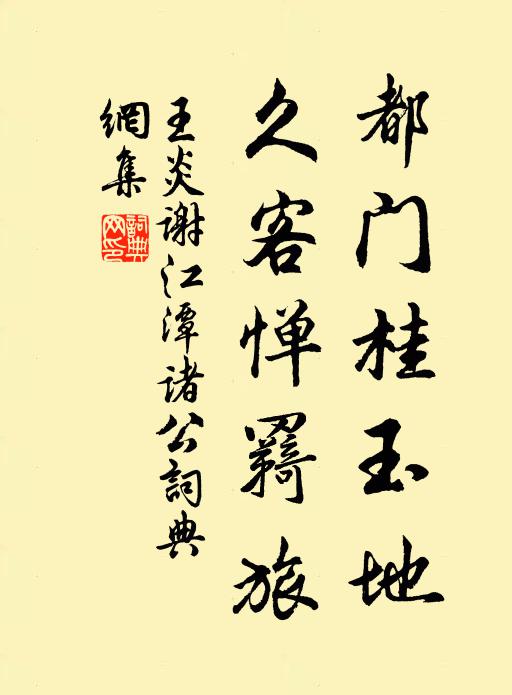 都门桂玉地
久客惮羁旅
王炎谢江潭诸公詞典
網集
詞典
网印